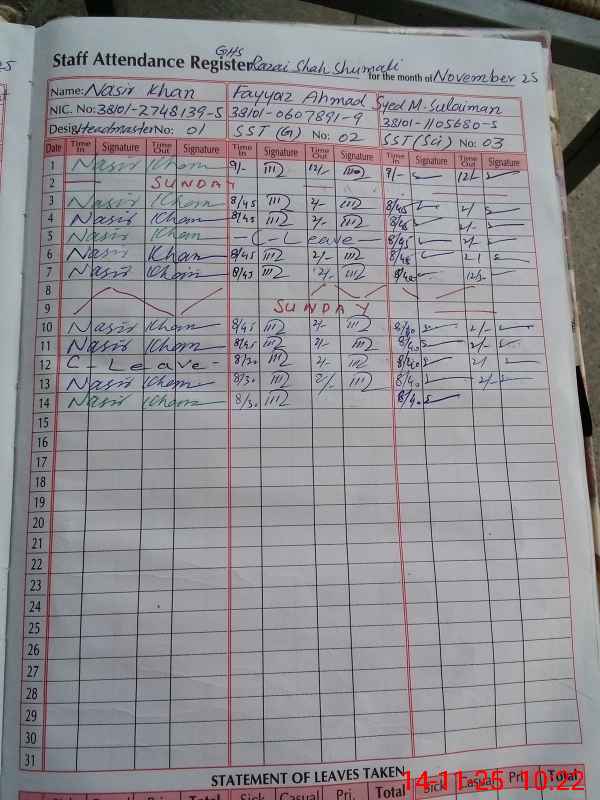 GHS
Staff Attendance Register Razai Shah Shumali
for the month of November 25
Name: Nasir Khan Fayyaz Ahmad Syed M. Sulaiman
NIC. No: 38101-2748139-5 38101-0607891-9 38101-1105680-5
Desig: Headmaster No: 01 SST (G) No: 02 SST (Sci) No: 03
Date Time In Signature Time Out Signature Time In Signature Time Out Signature Time In Signature Time Out Signature
1 Nasir Khan 9/- 12/- 9/- 12/-
2 SUNDAY
3 Nasir Khan 8/45 2/- 8/45 2/
4 Nasir Khan 8/45 2/- 2/-
5 Nasir Khan C-Leave- 8/45 2/-
6 Nasir Khan 8/45 2/- 8/40 2/
7 Nasir Khan 8/45 12/- 8/40
8
9 SUNDAY
10 Nasir Khan 8/45 2/- 8/40 2/-
11 Nasir Khan 8/45 2/- 8/40 2/-
12 C-Leave- 8/30 2/- 8/40 2/
13 Nasir Khan 8/30 2/- 8/40 2/-
14 Nasir Khan 8/30 8/40
15
16
17
18
19
20
21
22
23
24
25
26
27
28
29
30
31
STATEMENT OF LEAVES TAKEN
Total Sick Casual Pri. Total Sick Casual Pri. Total
14-11-25 10:22